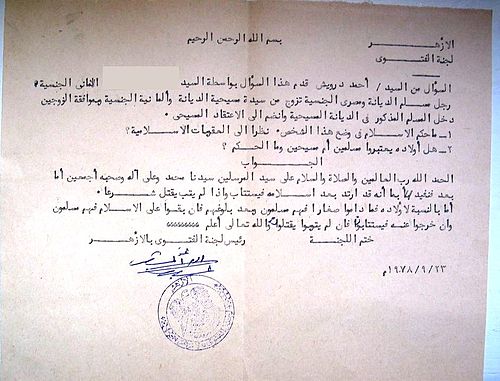 الأزهر
لجنة الفتوى
بسم الله الرحمن الرحيم
السؤال من السيد / أحمد درويش قدم هذا السؤال بواسطة السيد الألمانى الجنسية
رجل مسلم الديانة ومصرى الجنسية تزوج من سيدة مسيحية الديانة وألمانية الجنسية وبموافقة الزوجين
دخل المسلم المذكور فى الديانة المسيحية وانضم الى الاعتقاد المسيحى .
١ــ ماحكم الاسلام فى وضع هذا الشخص . نظرا الى العقوبات الاسلامية ؟
٢ــ هل أولاده يعتبروا مسلمين أم مسيحين وما الحكم ؟
الجواب
الحمد الله رب العالمين والصلاة والسلام على سيد المرسلين سيدنا محمد وعلى آله وصحبه أجمعين أما
بعد فنفيد بأنه قد ارتد بعد اسلامه فيستتاب واذا لم يتب يقتل شرعا .
أما بالنسبة لأولاده فما داموا صغارا فهم مسلمون وبعد بلوغهم فان بقوا على الاسلام فهم مسلمون
وان خرجوا عنه فيستتابوا فان لم يتوبوا يقتلوا والله تعالى أعلم
ختم اللجنة رئيس لجنة الفتوى بالأزهر
١٩٧٨/٩/٢٣م